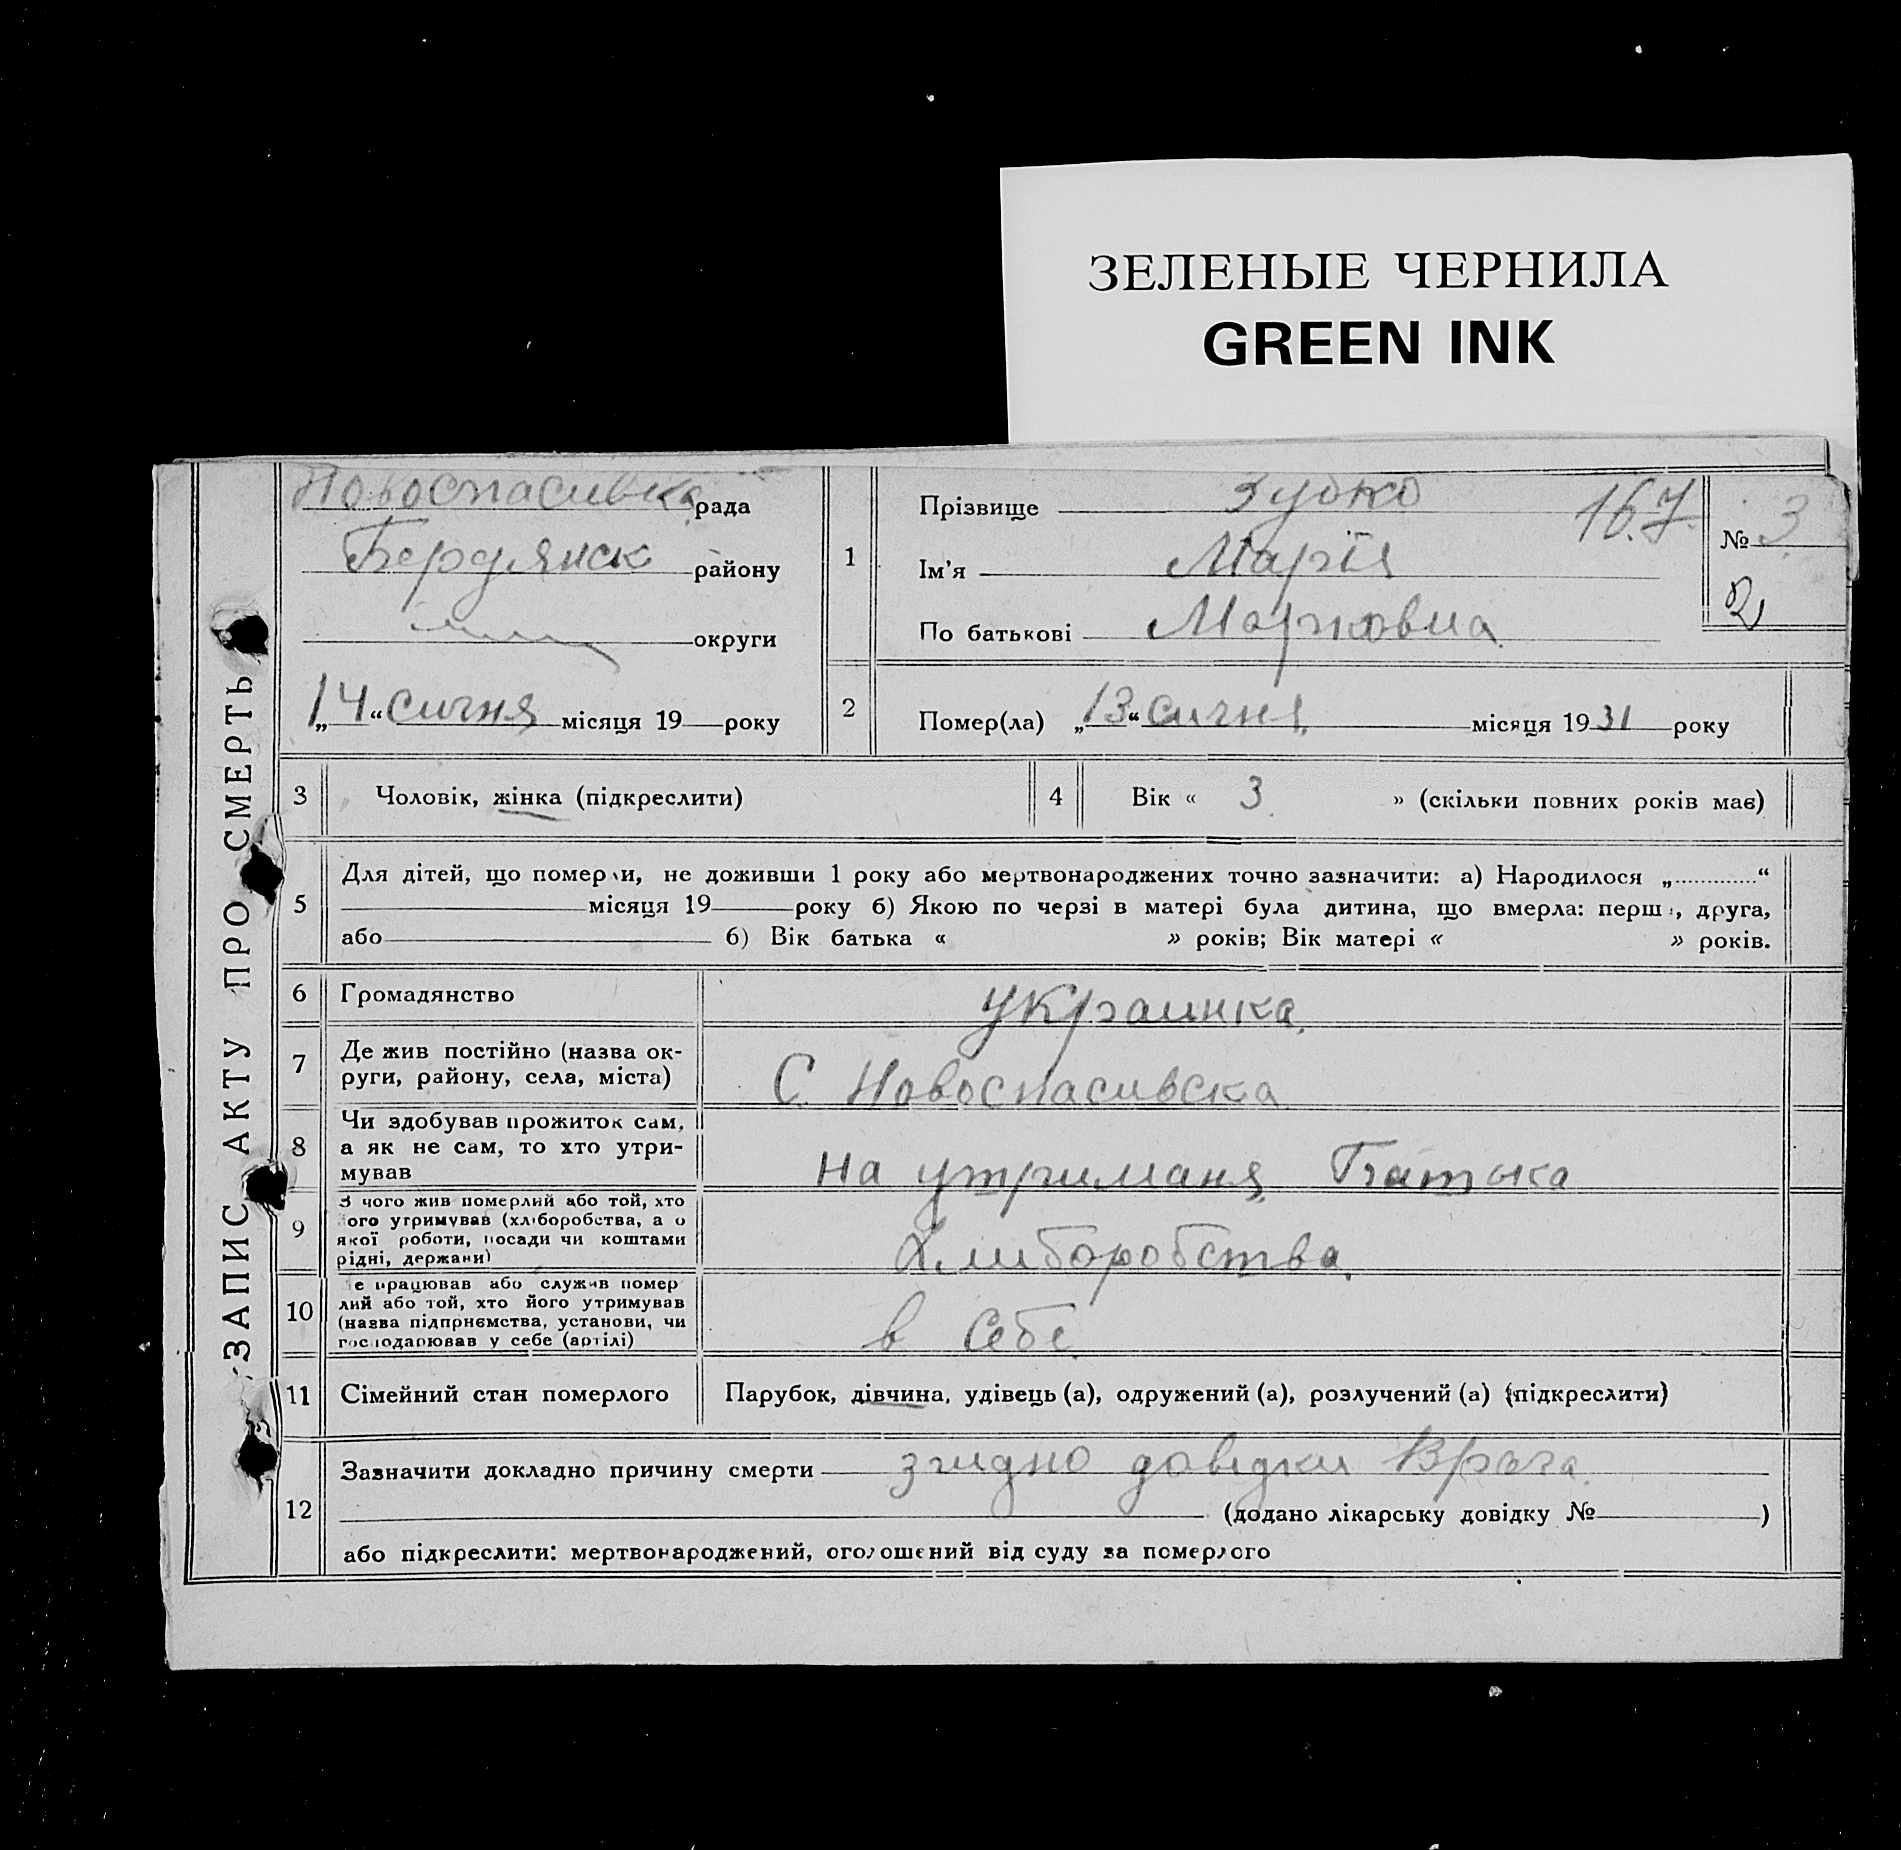 ЗЕЛЕНЫЕ ЧЕРНИЛА
GREEN INK
ЗАПИС АКТУ ПРО СМЕРТЬ
Новоспасивка рада
Бердянск району
округи
„14“ сичня місяця 19 року
1
Прізвище Зубко
Ім'я Марія
По батькові Марковна
167
№ 3
2
Помер(ла) „13“ сичня місяця 1931 року
3 Чоловік, жінка (підкреслити)
4 Вік « 3 » (скільки повних років має)
5
Для дітей, що померли, не доживши 1 року або мертвонароджених точно зазначити: а) Народилося „.............“
місяця 19 року б) Якою по черзі в матері була дитина, що вмерла: перша, друга,
або б) Вік батька « » років; Вік матері « » років.
6 Громадянство украинка
7 Де жив постійно (назва ок-
руги, району, села, міста)
С. Новоспасивска
8 Чи здобував прожиток сам,
а як не сам, то хто утри-
мував
на утриманя Батька
9 З чого жив померлий або той, хто
ого утримував (хліборобства, а о
якої роботи, посади чи коштами
рідні, держани)
Хлиборобства
10 е працював або служив помер
лий або той, хто його утримував
(назва підприємства, установи, чи
господарював у себе (артілі)
в себе
11 Сімейний стан померлого Парубок, дівчина, удівець (а), одружений (а), розлучений (а) (підкреслити)
12 Зазначити докладно причину смерти згидно довідки Врача
(додано лікарську довідку № )
або підкреслити: мертвонароджений, оголошений від суду за померлого